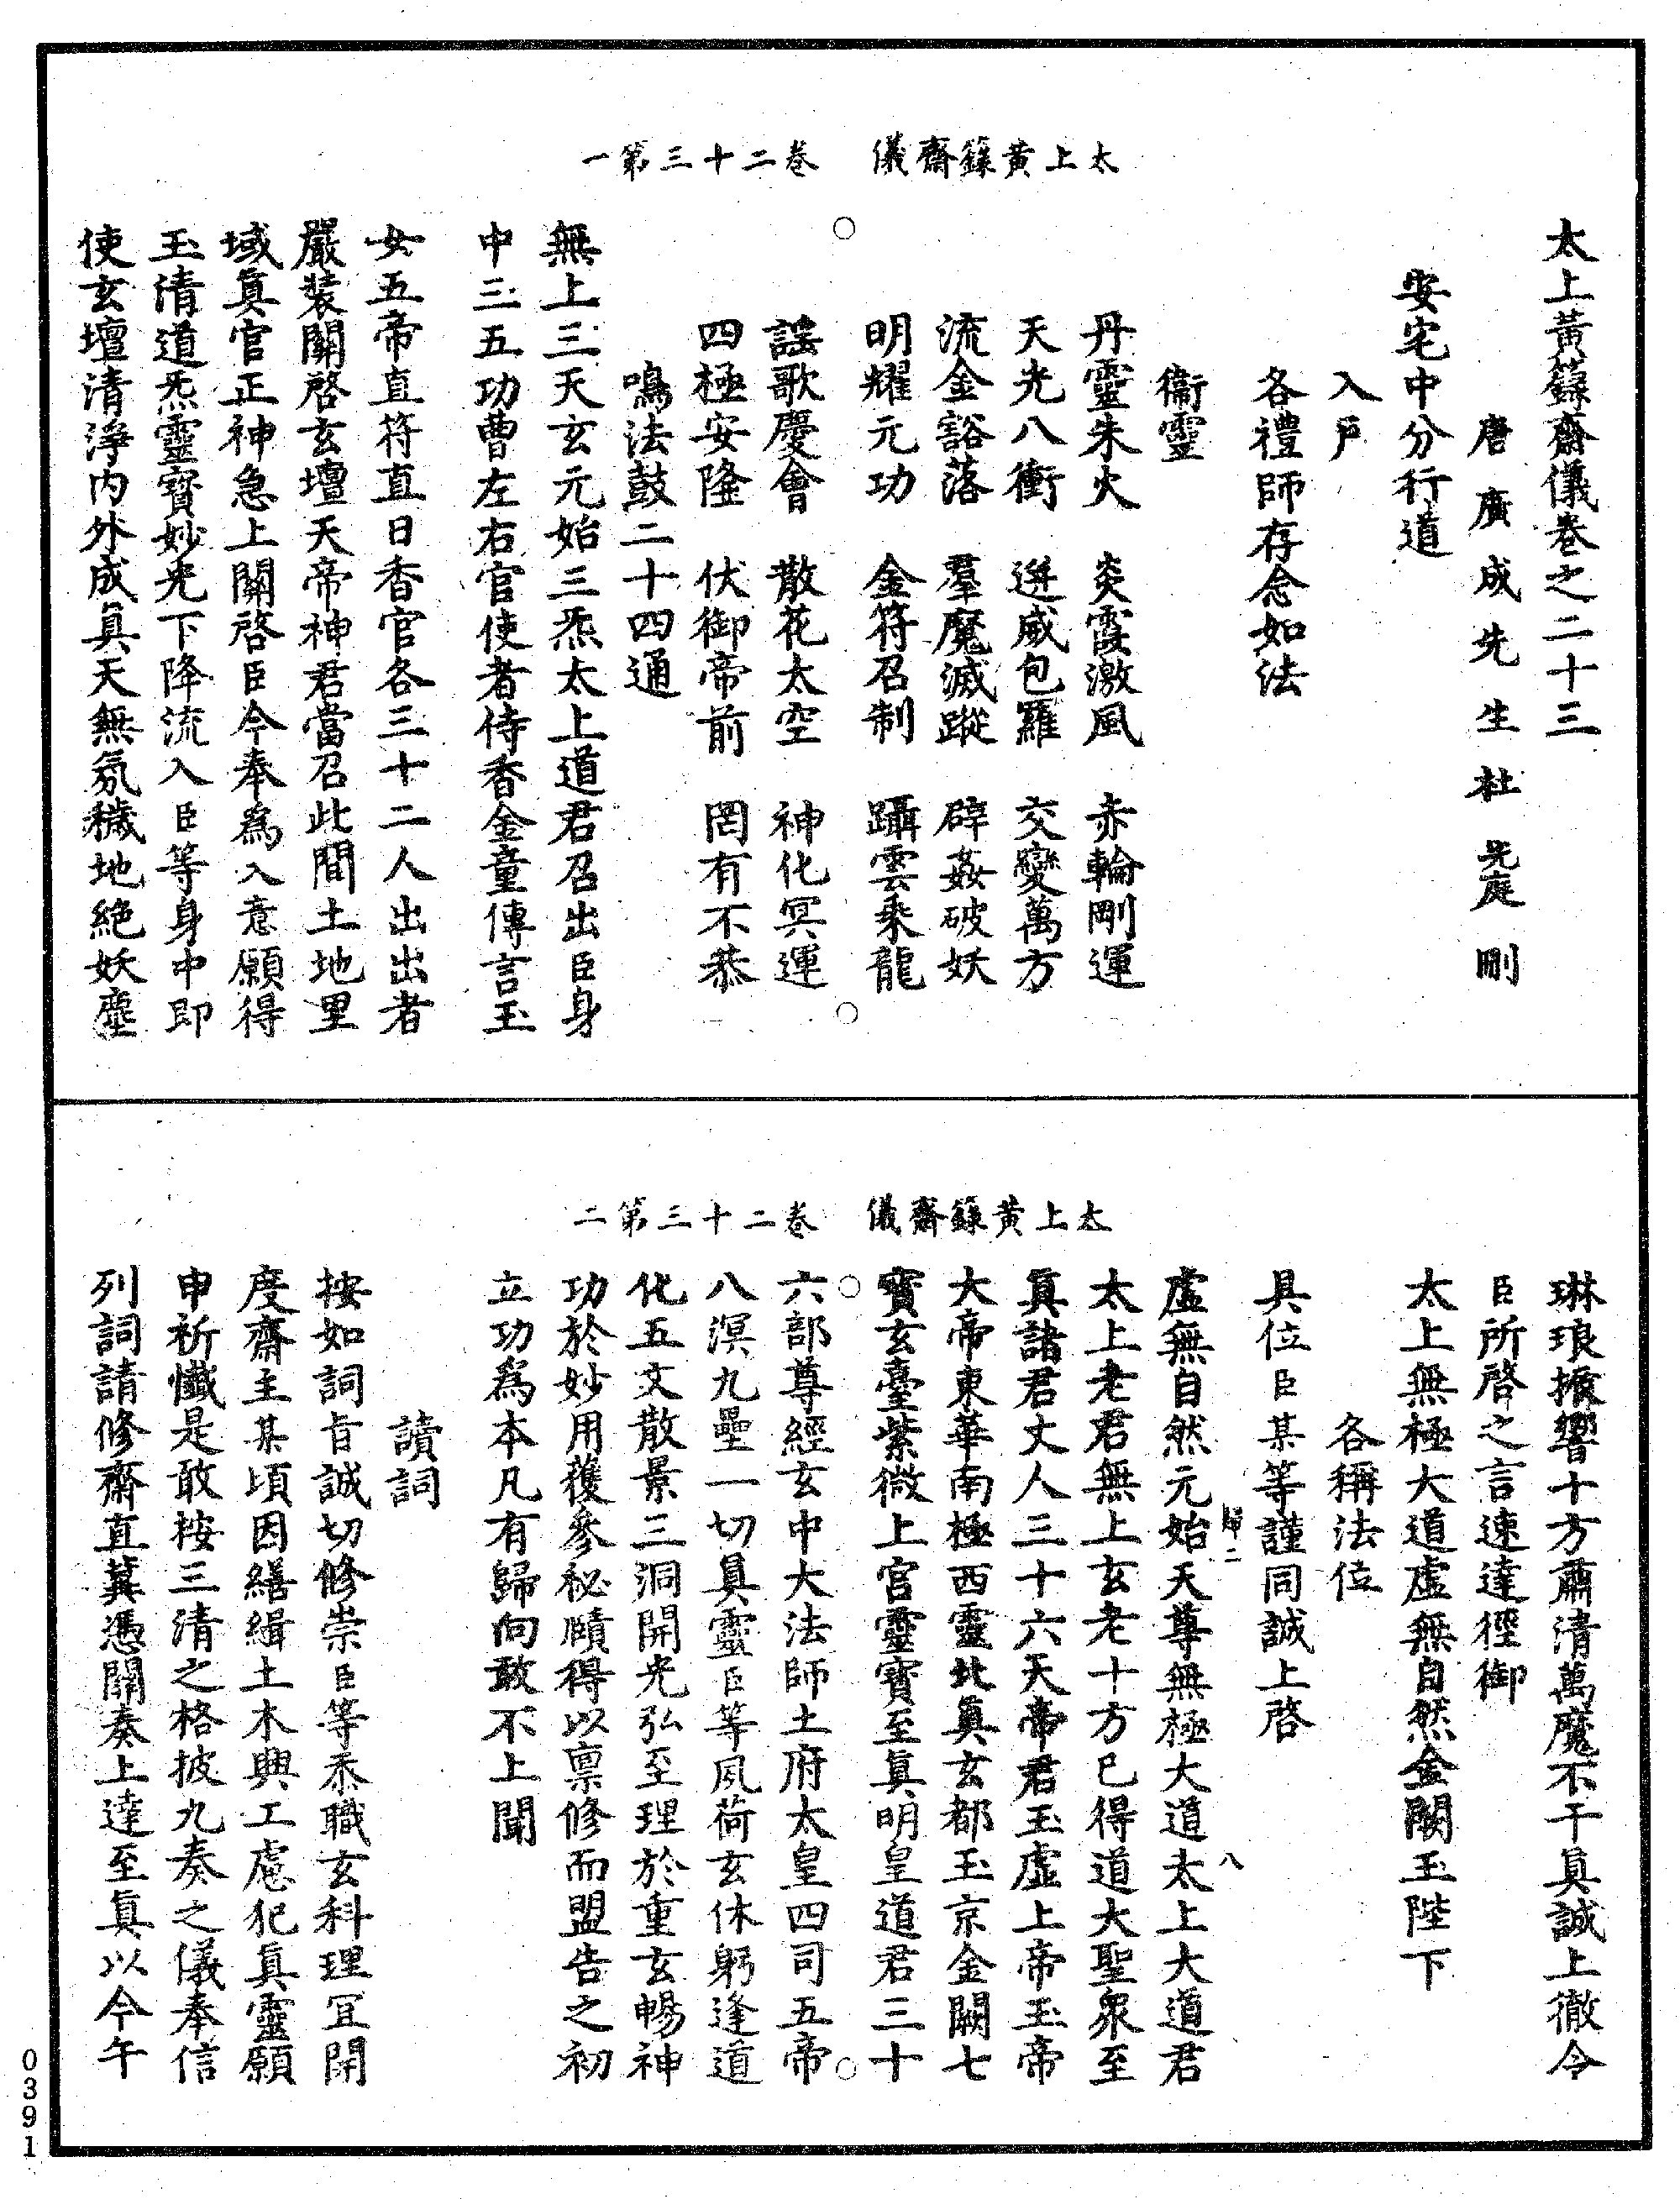 太上黃籙齋儀　卷二十三第一
太上黃籙齋儀卷之二十三
唐廣成先生杜光庭刪
安宅中分行道
入戶
各禮師存念如法
衞靈
丹靈朱火　炎霞激風　赤輪剛運
天光八衝　迸威包羅　交變萬方
流金豁落　羣魔滅蹤　辟姦破妖
明耀元功　金符召制　躡雲乘龍
謠歌慶會　散花太空　神化冥運
四極安隆　伏御帝前　罔有不恭
鳴法鼓二十四通
無上三天玄元始三炁太上道君召出臣身
中三五功曹左右官使者侍香金童傳言玉
女五帝直符直日香官各三十二人出出者
嚴裝關啓玄壇天帝神君當召此間土地里
域真官正神急上關啓臣今奉為入意願得
玉清道炁靈寶妙光下降流入臣等身中即
使玄壇清淨內外成真天無氛穢地絕妖塵
太上黃籙齋儀　卷二十三第二
琳琅振響十方肅清萬魔不干真誠上徹令
臣所啓之言速達徑御
太上無極大道虛無自然金闕玉陛下
各稱法位
具位臣某等謹同誠上啓
虛無自然元始天尊無極大道太上大道君
太上老君無上玄老十方已得道大聖眾至
真諸君丈人三十六天帝君玉虛上帝玉帝
大帝東華南極西靈北真玄都玉京金闕七
寶玄臺紫微上宮靈寶至真明皇道君三十
六部尊經玄中大法師土府太皇四司五帝
八溟九壘一切真靈臣等夙荷玄休躬逢道
化五文散景三洞開光弘至理於重玄暢神
功於妙用獲參祕賾得以稟修而盟告之初
立功為本凡有歸向敢不上聞
讀詞
按如詞旨誠切修崇臣等忝職玄科理宜開
度齋主某頃因繕緝土木興工慮犯真靈願
申祈懺是敢按三清之格披九奏之儀奉信
列詞請修齋直冀憑關奏上達至真以今午
八
0391